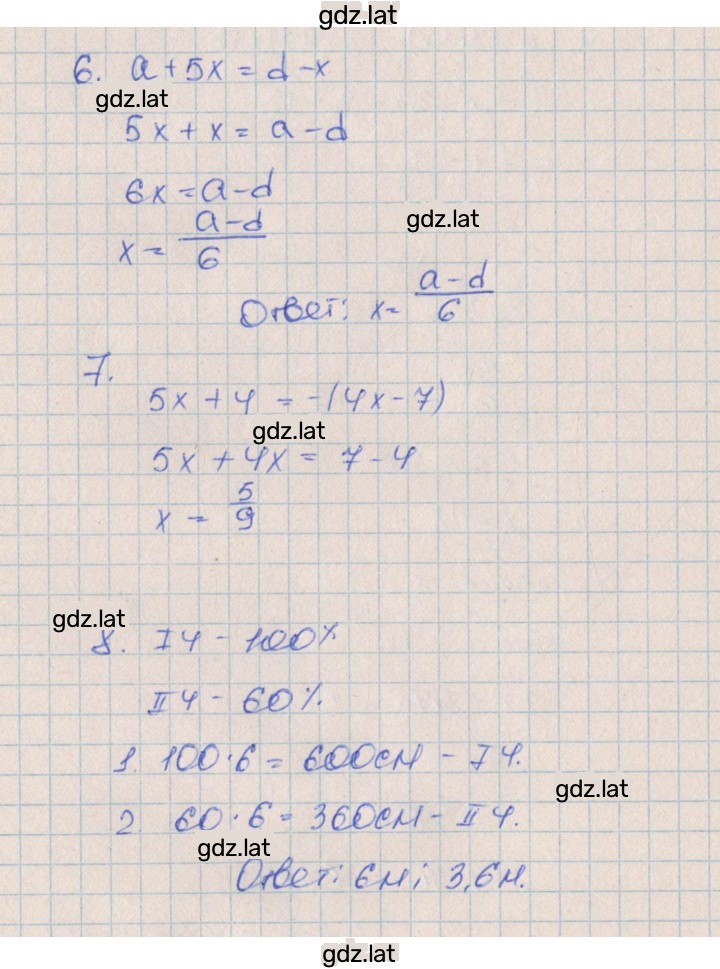 gdz.lat
6. a + 5x = d - x
gdz.lat
5x + x = a - d
6x = a - d
gdz.lat
x = \frac{a-d}{6}
Ответ: x = \frac{a-d}{6}
7.
5x + 4 = -(4x - 7)
gdz.lat
5x + 4x = 7 - 4
x = \frac{5}{9}
gdz.lat
8. I ч - 100%
II ч - 60%.
1. 100·6 = 600см - I ч.
gdz.lat
2. 60·6 = 360см - II ч.
gdz.lat
Ответ: 6м; 3,6м.
gdz.lat